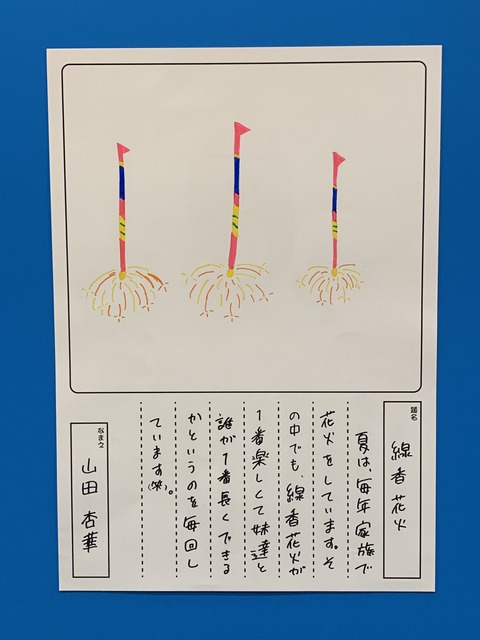 題名
線香花火
夏は、毎年家族で
花火をしています。そ
の中でも、線香花火が
1番楽しくて妹達と
誰が1番長くできる
かというのを毎回し
ています(笑)。
なまえ
山田杏華